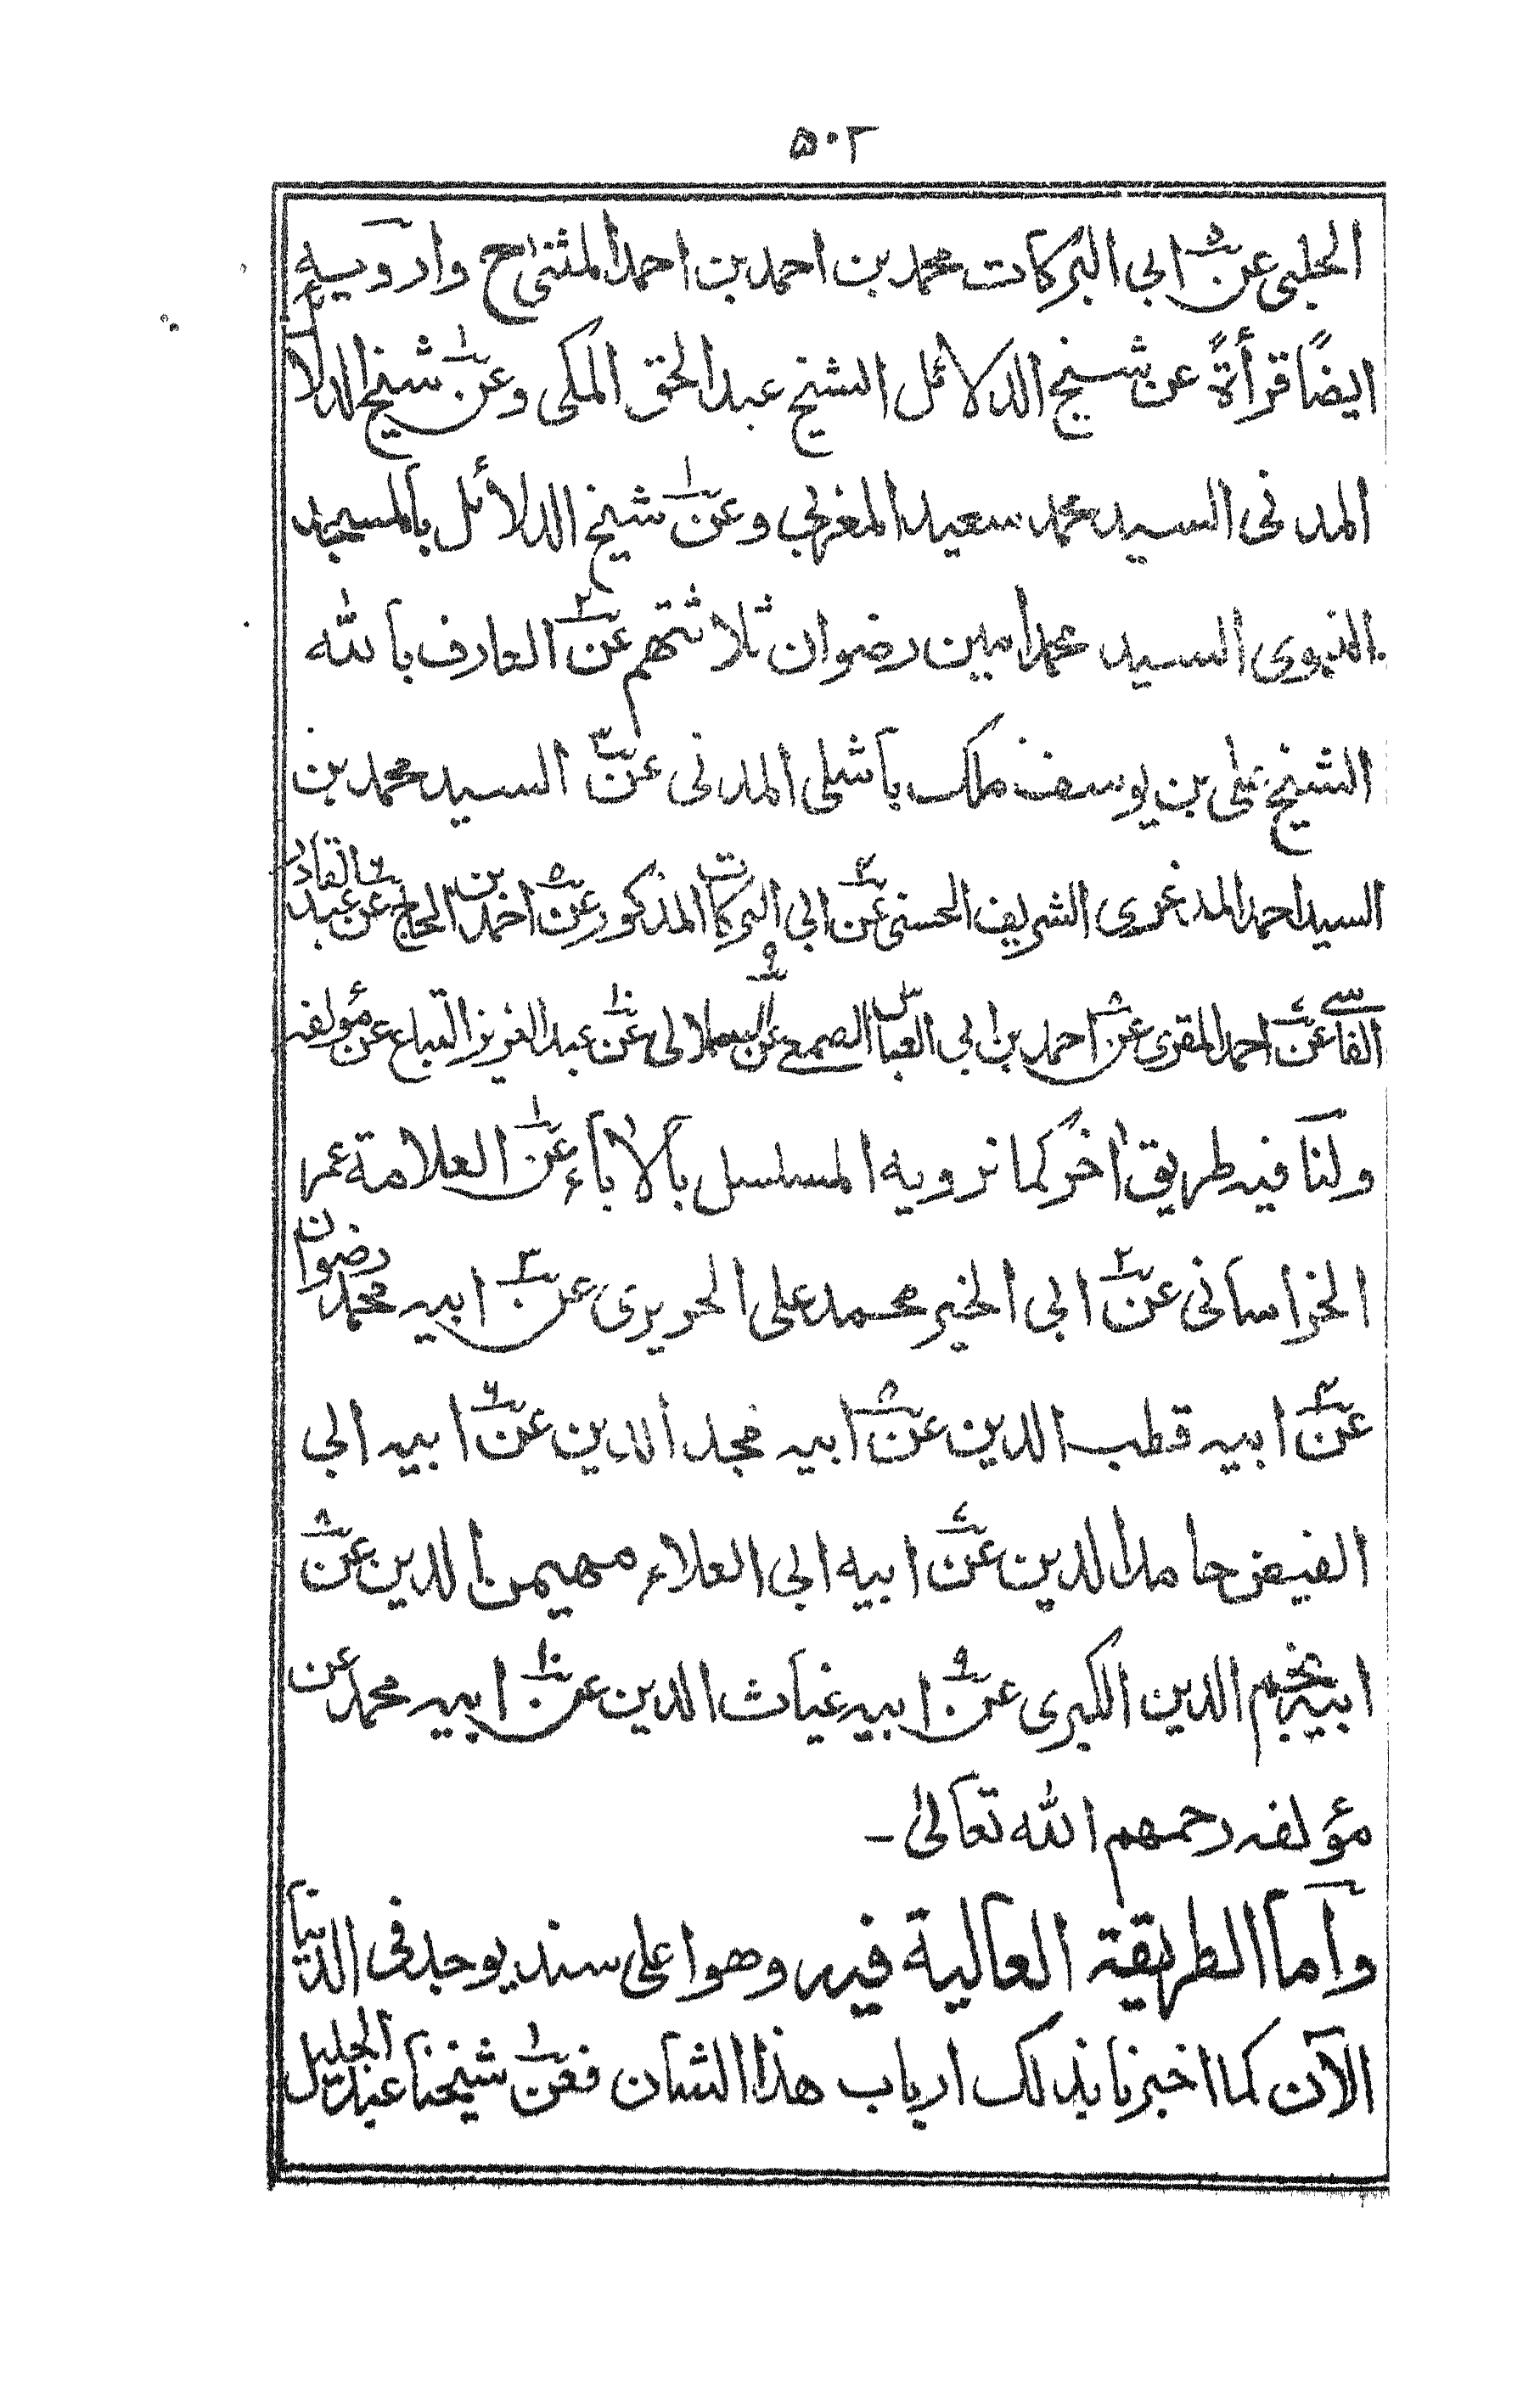 ٥٠٢
الحلبى عن ٥ ابى البركات محمد بن احمد بن احمد المثنى ح وارويه
ايضًا قرأةً عن شيخ الدلائل الشيخ عبد الحق المكى وعن ١ شيخ الدلائل
المدنى السيد محمد سعيد المغربى وعن ١ شيخ الدلائل بالمسجد
النبوى السيد محمد امين رضوان ثلاثتهم عن ٢ العارف بالله
الشيخ على بن يوسف ملك باشلى المدنى عن ٣ السيد محمد بن
السيد احمد المدغرى الشريف الحسنى عن ٤ ابى البركات المذكور عن ٥ احمد بن الحاج عن ٦ عبد القادر
الفاسى عن ٧ احمد المقرى عن ٨ احمد بن ابى العباس الصمعى عن ٩ السملالى عن ١٠ عبد العزيز التباع عن مؤلفه
ولنا فيه طريق اٰخر كما نرويه المسلسل بالاٰباء عن ١ العلامة عمر
الخراسانى عن ٢ ابى الخير محمد على الحريرى عن ٣ ابيه محمد رضوان
عن ٤ ابيه قطب الدين عن ٥ ابيه مجد الدين عن ٦ ابيه ابى
الفيض حامد الدين عن ٧ ابيه ابى العلاء مهيمن الدين عن ٨
ابيه نجم الدين الكبرى عن ٩ ابيه غياث الدين عن ١٠ ابيه محمد عن
مؤلفه رحمهم الله تعالىٰ -
واما الطريقة العالية فيه وهو اعلى سند يوجد فى الدنيا
الآن كما اخبرنا بذلك ارباب هذا الشان فعن ١ شيخنا عبد الجليل